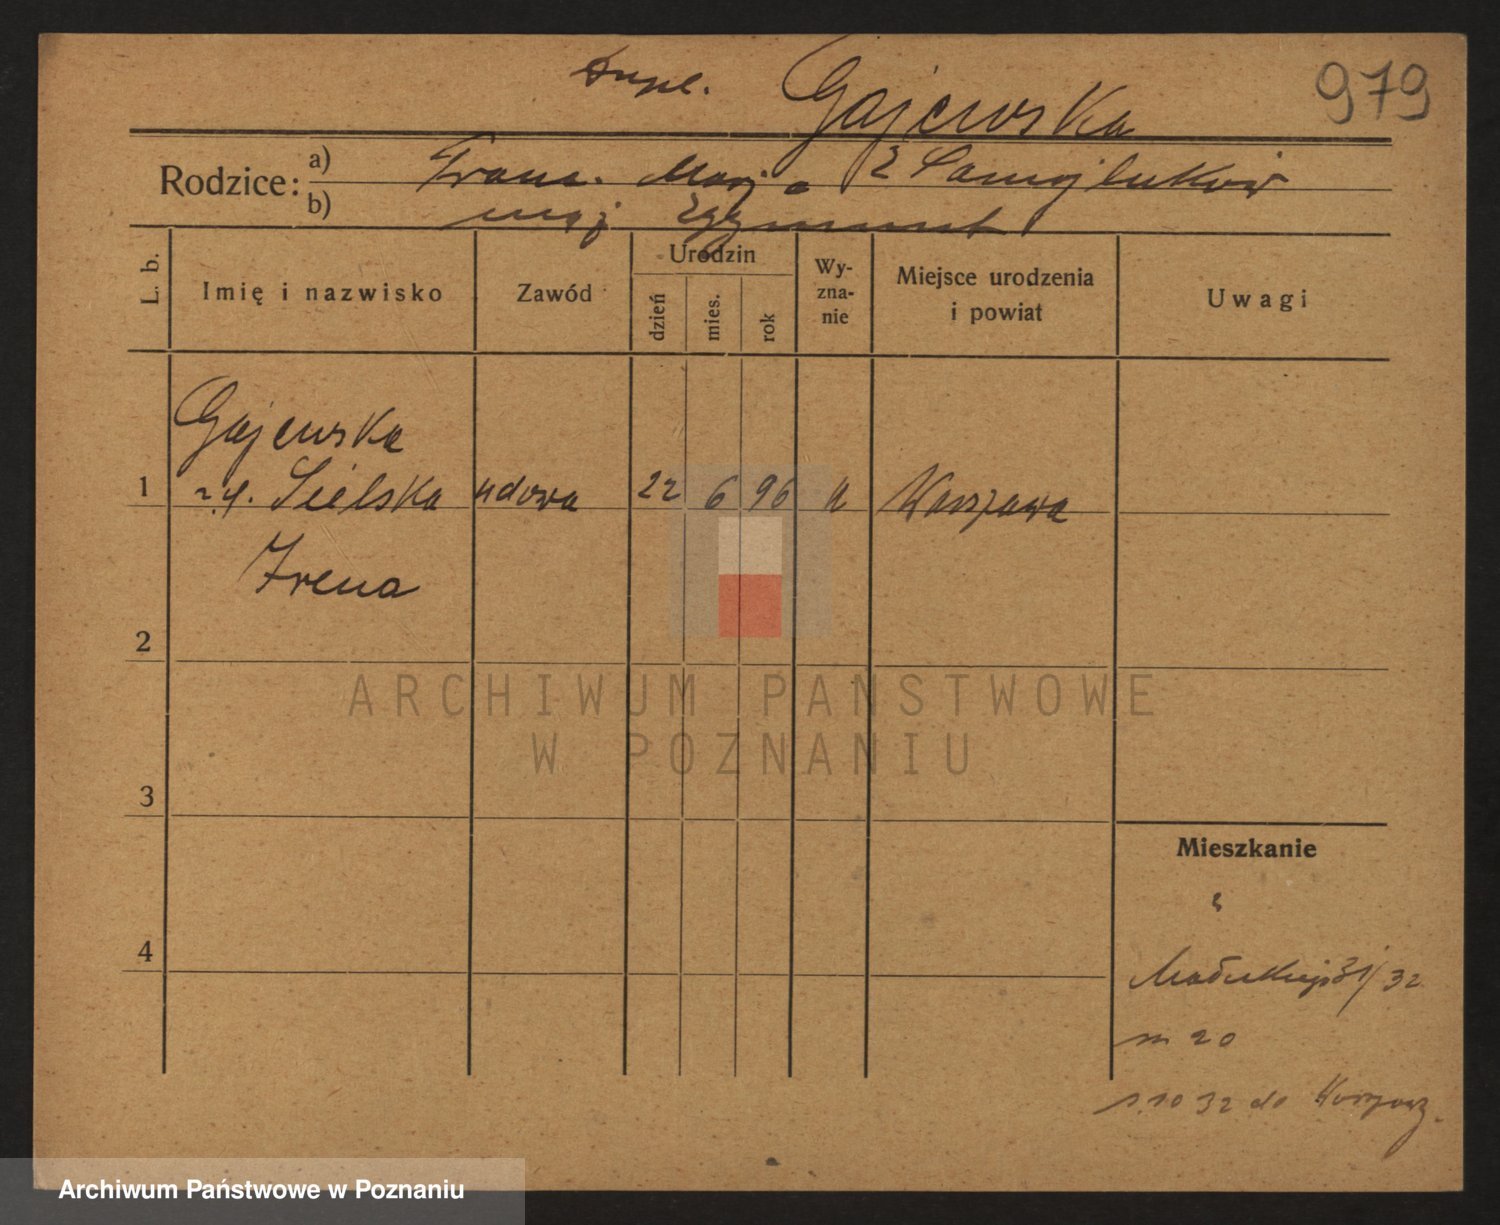 Dupl. Gajewska 979
Rodzice: a) Franc. Marja z Samojluków
b) mąż Zygmunt
L. b. Imię i nazwisko Zawód Urodzin dzień mies. rok Wy-zna-nie Miejsce urodzenia i powiat Uwagi
Gajewska
1 z d. Sielska wdowa 22 6 96 k Warszawa
Irena
2
ARCHIWUM PAŃSTWOWE
W POZNANIU
3
Mieszkanie
4
31/32
m 20
10 32 do Warszawy
Archiwum Państwowe w Poznaniu